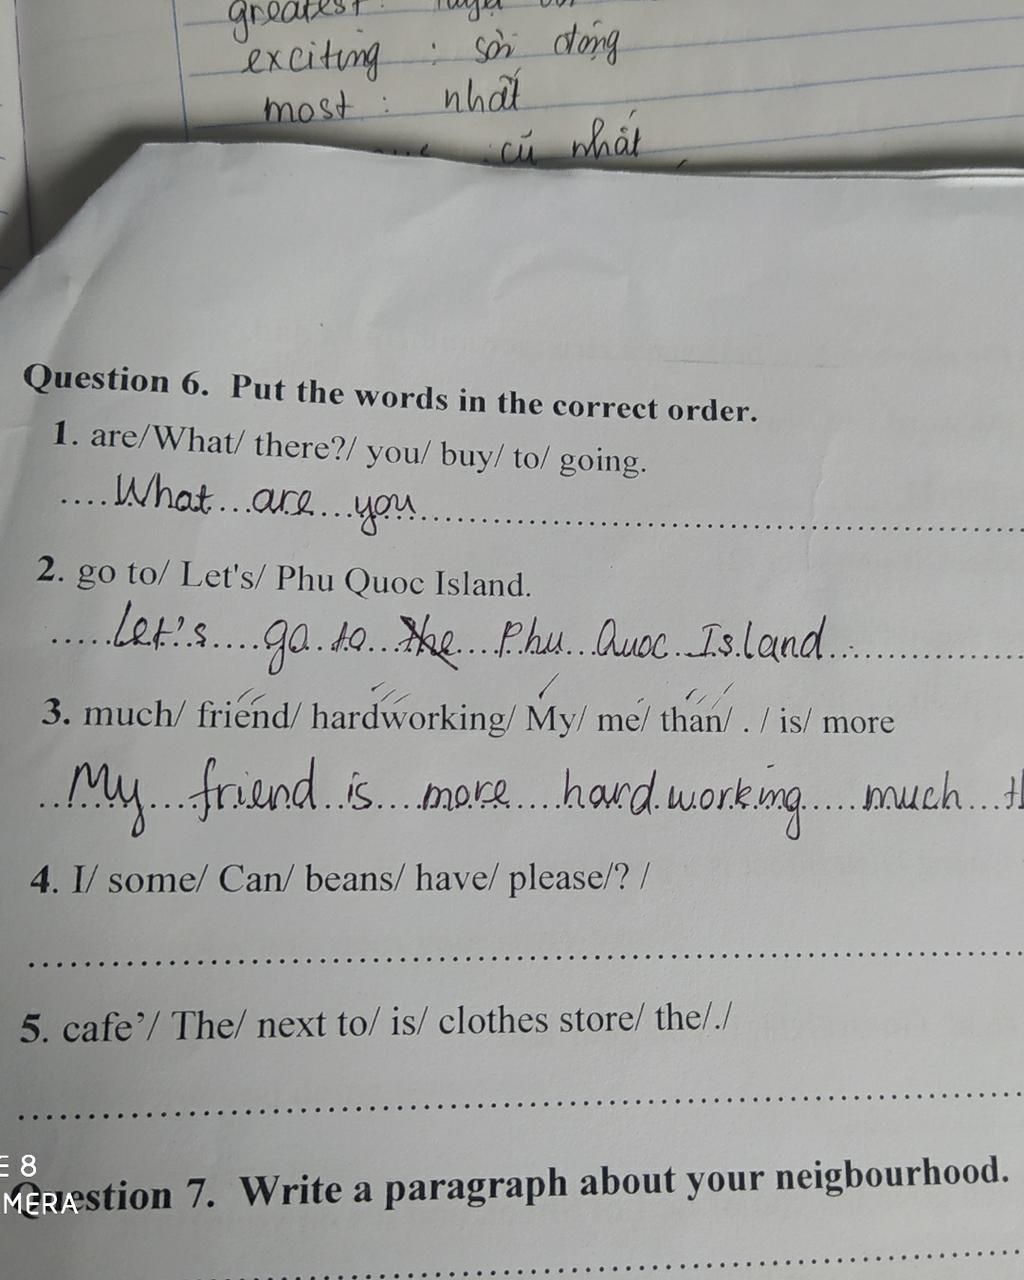 greatest :
exciting : sôi động
most : nhất
cũ nhất
Question 6. Put the words in the correct order.
1. are/What/ there?/ you/ buy/ to/ going.
....What...are...you..............................
2. go to/ Let's/ Phu Quoc Island.
.....Let's....go..to..the....Phu...Quoc..Island..............
3. much/ friend/ hardworking/ My/ me/ than/ . / is/ more
..My...friend..is....more....hardworking.....much...th
4. I/ some/ Can/ beans/ have/ please/? /
5. cafe'/ The/ next to/ is/ clothes store/ the/./
Question 7. Write a paragraph about your neigbourhood.
E 8
MERA